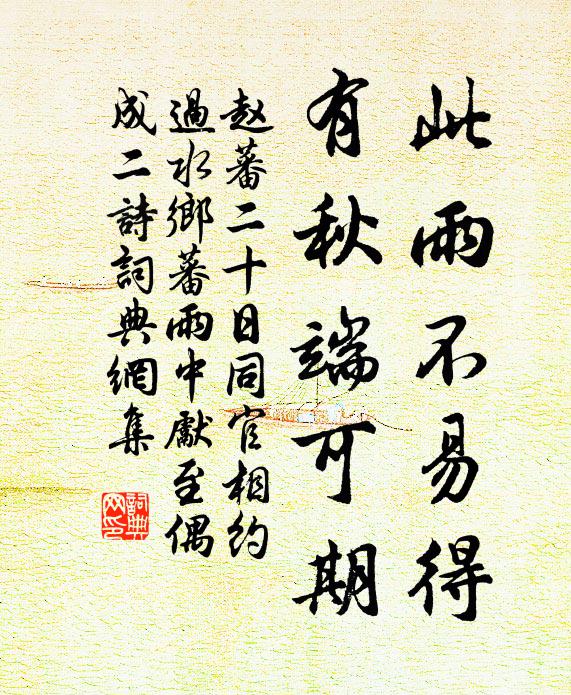 此雨不易得
有秋端可期
赵蕃二十日同官相约
過水鄉蕃雨中獻至偶
成二詩詞典網集
詞典
网印